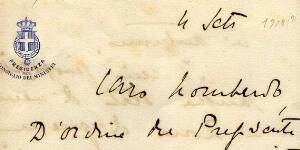 4 Sett
1918?
PRESIDENZA
DEL
CONSIGLIO DEI MINISTRI
Caro Lombardo,
D'ordine del Presidente